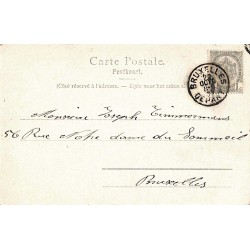 Carte Postale.
Postkaart.
Côté réservé à l'adresse. — Zijde voor het adres
BRUXELLES
OCTO
DEPART
Monsieur Joseph Timmermans
56 Rue Notre dame du Sommeil
Bruxelles